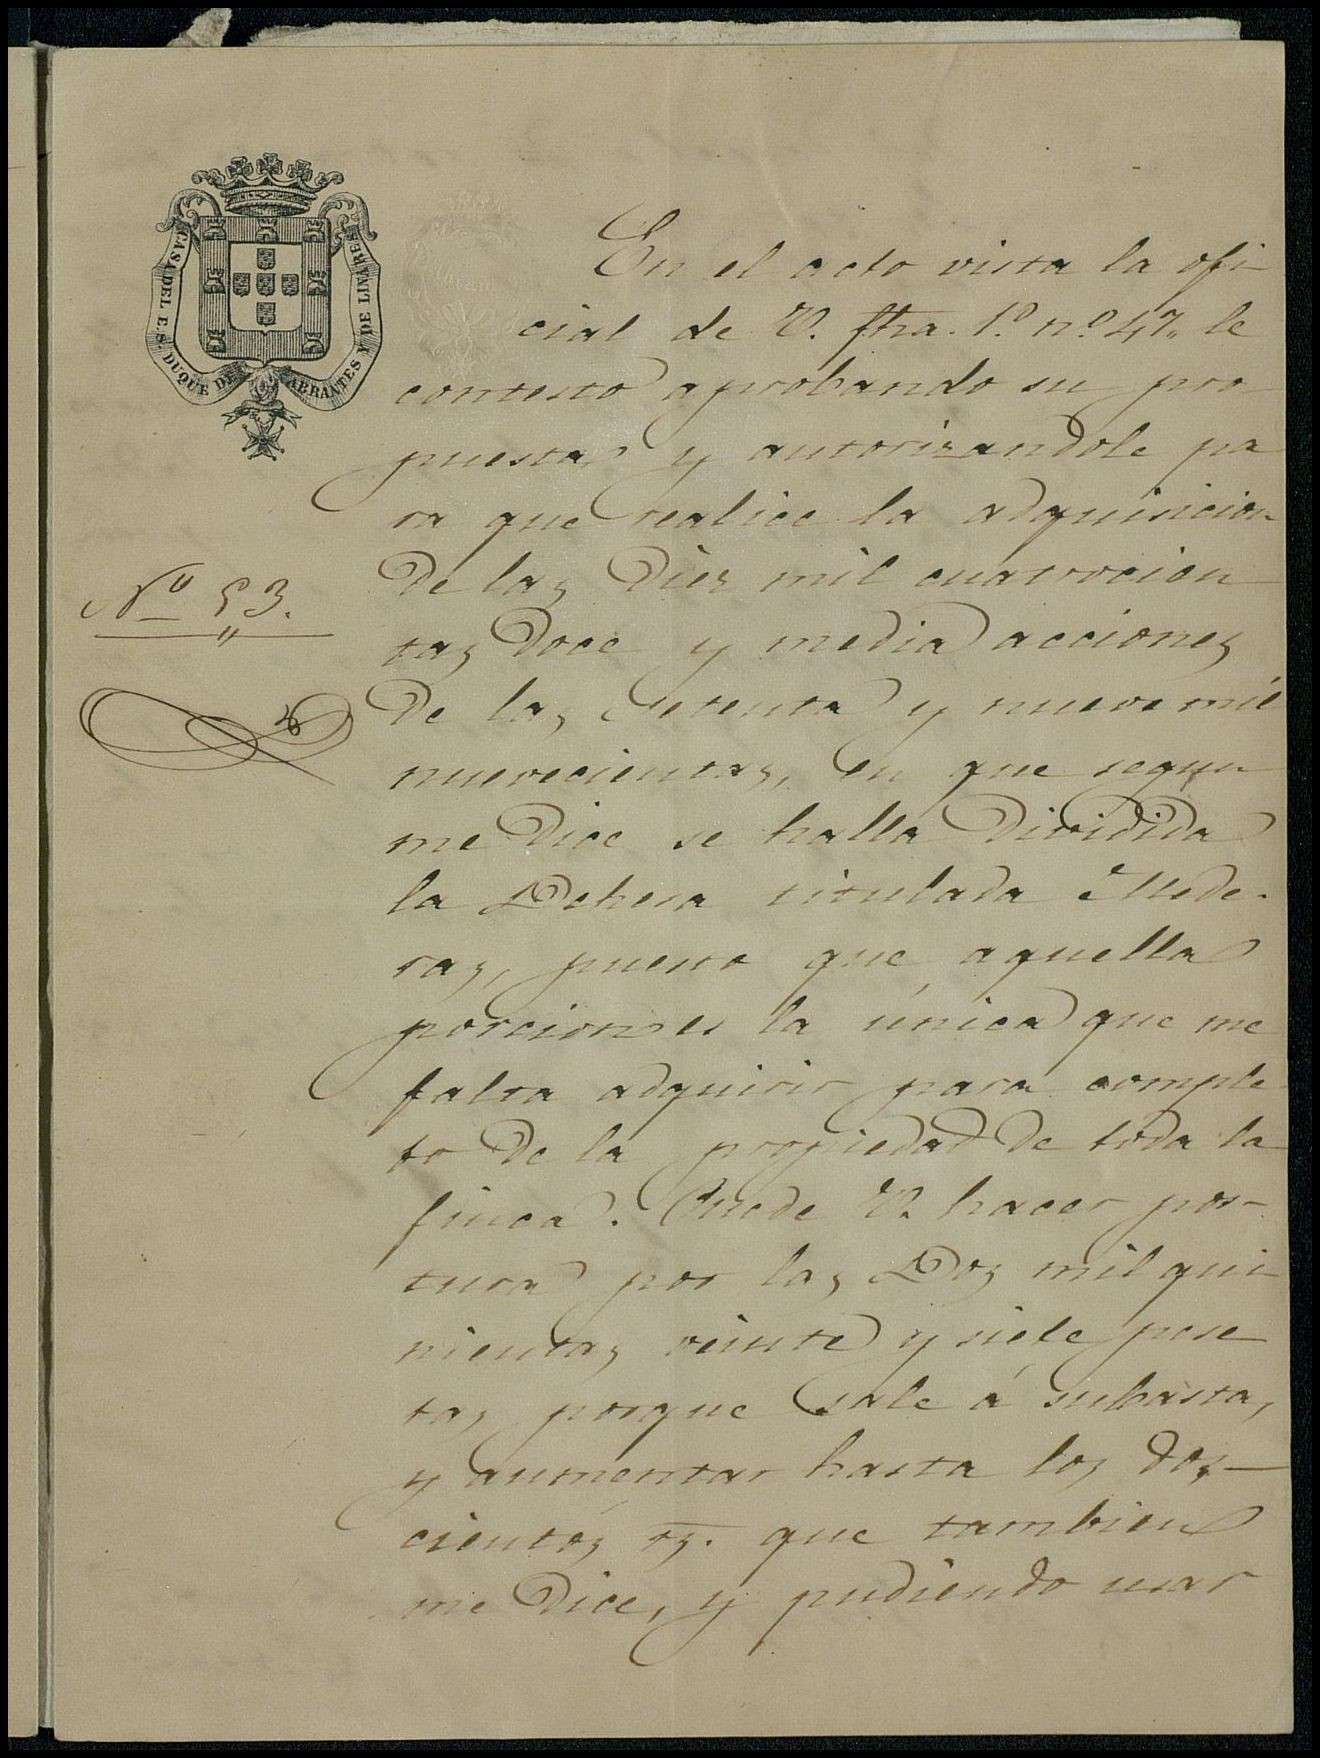 CASA DEL E. S. DUQUE DE ABRANTES Y DE LINARES
En el acto vista la ofi-
cial de V. fha. 1º nº 47,, le
contesto aprobando su pro
puesta y autorizandole pa
ra que realice la adquisicion
de las diez mil cuatrocien
Nº 53.
tas doce y media acciones
de las setenta y nueve mil
nuevecientas, en que segun
me dice se halla dividida
la Dehesa titulada Mede-
ras, puesto que aquella
porcion es la única que me
falta adquirir para comple
to de la propiedad de toda la
finca. Puede V. hacer pos-
tura por las Dos mil qui-
nientas veinte y siete pese
tas porque sale á subasta,
y aumentar hasta los dos-
cientos rs. que tambien
me dice, y pudiendo usar